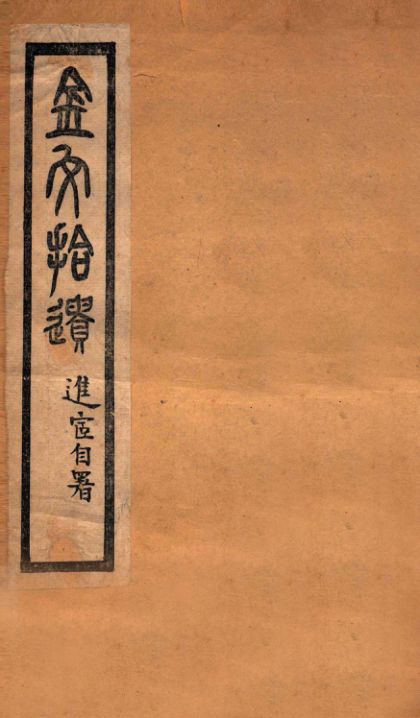 金文拾遺
進宧自署